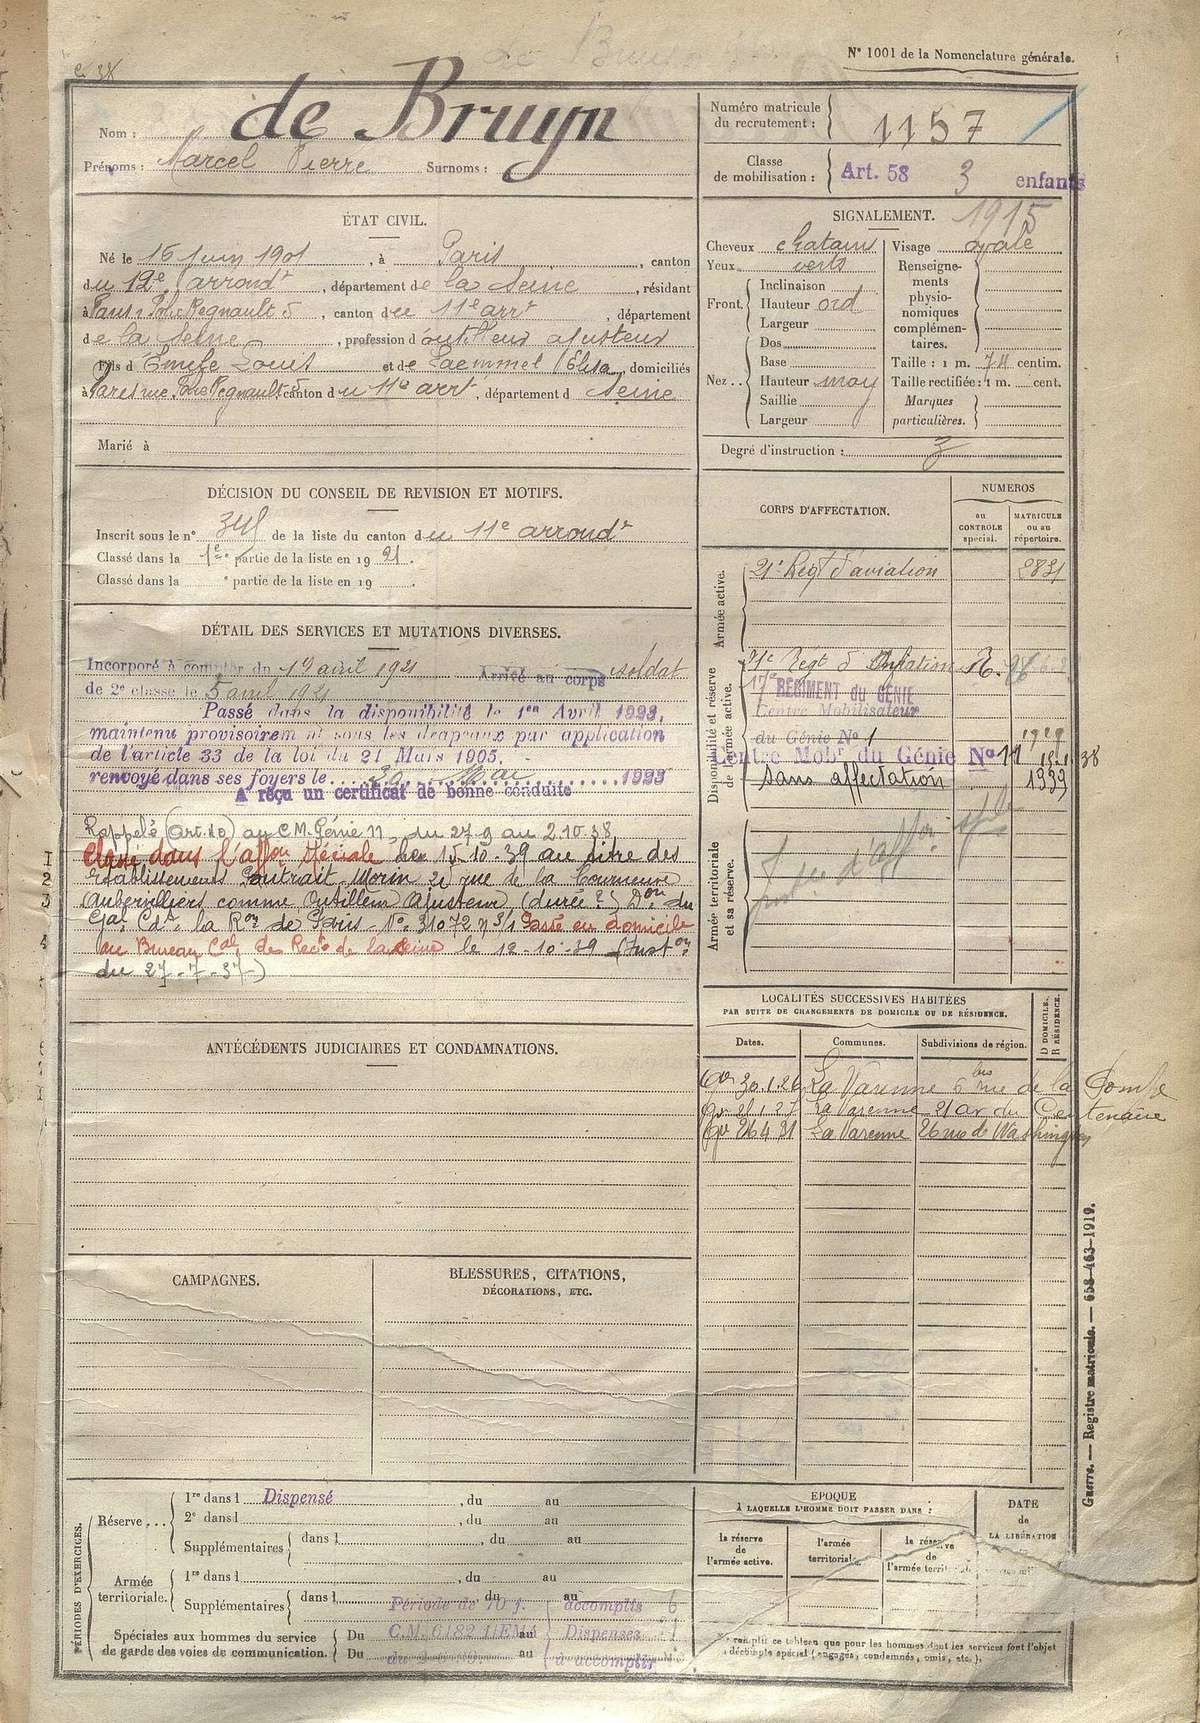 N° 1001 de la Nomenclature générale.
Nom : de Bruyn
Prénoms : Marcel Pierre Surnoms :
Numéro matricule du recrutement : 1157
Classe de mobilisation : Art. 58 3 enfants
1915
ÉTAT CIVIL.
Né le 16 juin 1901, à Paris, canton
du 12e arrondt, département de la Seine, résidant
à Paris r. Regnault 5, canton du 11e arrt, département
de la Seine, profession d'outilleur ajusteur
Fils d' Louis et de Elisa, domiciliés
à Paris rue Regnault 5 canton du 11e arrt, département d Seine
Marié à
SIGNALEMENT.
Cheveux chatains
Yeux verts
Front. Inclinaison
Hauteur ord
Largeur
Nez.. Dos
Base
Hauteur moy
Saillie
Largeur
Visage ovale
Renseignements physionomiques complémentaires.
Taille : 1 m. 74 centim.
Taille rectifiée : 1 m. cent.
Marques particulières.
Degré d'instruction : 3
DÉCISION DU CONSEIL DE REVISION ET MOTIFS.
Inscrit sous le n° de la liste du canton du 11e arrondt
Classé dans la 1e partie de la liste en 1921.
Classé dans la e partie de la liste en 19
DÉTAIL DES SERVICES ET MUTATIONS DIVERSES.
Incorporé à compter du 1er avril 1921 Arrivé au corps soldat
de 2e classe le 5 avril 1921
Passé dans la disponibilité le 1er Avril 1923,
maintenu provisoirement sous les drapeaux par application
de l'article 33 de la loi du 21 Mars 1905,
renvoyé dans ses foyers le 30 mai 1923
A reçu un certificat de bonne conduite
Rappelé (art. 40) au C.M. Génie 11 du 27 9 au 2.10.38
Classé dans l'affon spéciale le 15-10-39 au titre des
Etablissements Poutrait Morin rue de la Courneuve
Aubervilliers comme outilleur ajusteur (durée ?) Don du
Gal Cdt la Ron de Paris N° 31072 3/1 Passé en domicile
au Bureau Cal de Rect de la Seine le 12-10-39 (Inston
du 27-7-37)
CORPS D'AFFECTATION.
NUMEROS
au CONTROLE spécial.
MATRICULE ou au répertoire.
Armée active.
21e Regt d'aviation 2831
Disponibilité et réserve de l'armée active.
Regt d'Aviation R.
17e RÉGIMENT DU GÉNIE
Centre Mobilisateur
du Génie N° 1 1929
Centre Mobr du Génie No 11 38
Sans affectation 1939
Armée territoriale et sa réserve.
d'affon
LOCALITÉS SUCCESSIVES HABITÉES
PAR SUITE DE CHANGEMENTS DE DOMICILE OU DE RÉSIDENCE.
Dates. Communes. Subdivisions de région. D DOMICILE. R RÉSIDENCE.
30.1.26 La Varenne 6 bis rue de la Pompe
21.1.27 La Varenne 21 av du Centenaire
26.4.31 La Varenne 26 rue de Washington
ANTÉCÉDENTS JUDICIAIRES ET CONDAMNATIONS.
CAMPAGNES.
BLESSURES, CITATIONS,
DÉCORATIONS, ETC.
PÉRIODES D'EXERCICES.
Réserve... 1re dans l Dispensé, du au
2e dans l , du au
Supplémentaires dans l , du au
Armée territoriale. 1re dans l , du au
Supplémentaires dans l du au
Période de 10 j. accomplis 6
Spéciales aux hommes du service de garde des voies de communication.
Du C.M. au Dispenses 1
Du au à accomplir
EPOQUE
À LAQUELLE L'HOMME DOIT PASSER DANS :
la réserve de l'armée active.
l'armée territoriale.
la réserve de l'armée territ
DATE de LA LIBÉRATION
remplit ce tableau que pour les hommes dont les services font l'objet
décompte spécial (engagés, condamnés, omis, etc.).
Guerre. — Registre matricule. — 658-463-1919.